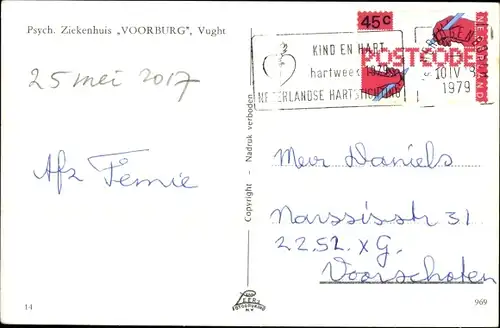 Psych. Ziekenhuis „VOORBURG", Vught
45c
NEDERLAND
POSTCODE
KIND EN HART
hartweek 1979
NEDERLANDSE HARTSTICHTING
10 IV
1979
25 mei 2017
Afz Femie
Copyright - Nadruk verboden
Mevr Daniels
Narssisstr 31
2252 XG.
Voorschoten
14
969